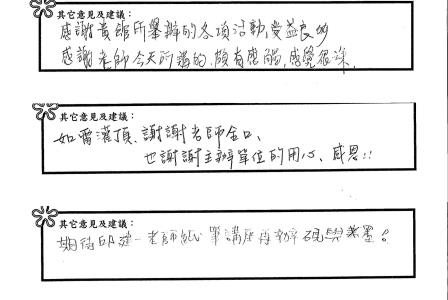 其它意見及建議：
感謝貴館所舉辦的各項活動,受益良多
感謝老師今天所講的,頗有感觸,感覺很深.
其它意見及建議：
如雷灌頂、謝謝老師金口、
也謝謝主辦單位的用心、感恩!!
其它意見及建議：
期待 老師 筆講座再